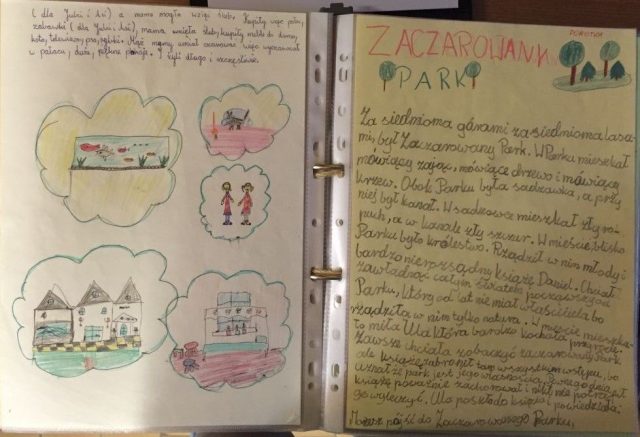 ( dla Julci i Asi) a mama mogła wziąć ślub. Kupiły więc psa,
zabawki ( dla Julci i Asi), mama wzięła ślub, kupiły meble do domu,
kota, telewizory, psa, rybki. Mąż mamy,
w pałacu, duże, piękne pokoje. I żyli długo i szczęśliwie.
ZACZAROWANY
PARK
Za siedmioma górami za siedmioma lasa-
mi, był Zaczarowany Park. W Parku mieszkał
mówiący zając, mówiące drzewo i mówiący
krzew. Obok Parku była sadzawka, a przy
niej był kanał. W sadzawce mieszkał zły ro-
puch, a w kanale zły szczur. W mieście, blisko
Parku było królestwo. Rządził w nim młody i
bardzo nierozsądny książę Daniel. Chciał
zawładnąć całym światem począwszy od
Parku, który od lat nie miał właściciela bo
rządziła w nim tylko natura. W mieście mieszka-
ła miła Ula która bardzo kochała przyrodę.
Zawsze chciała zobaczyć zaczarowany Park
ale książę zabronił tam wszystkim wstępu, bo
uznał że park jest jego własnością. Pewnego dnia
książę poważnie zachorował i nikt nie potrafił
go wyleczyć. Ula poszła do księcia i powiedziała:
Muszę pójść do Zaczarowanego Parku,